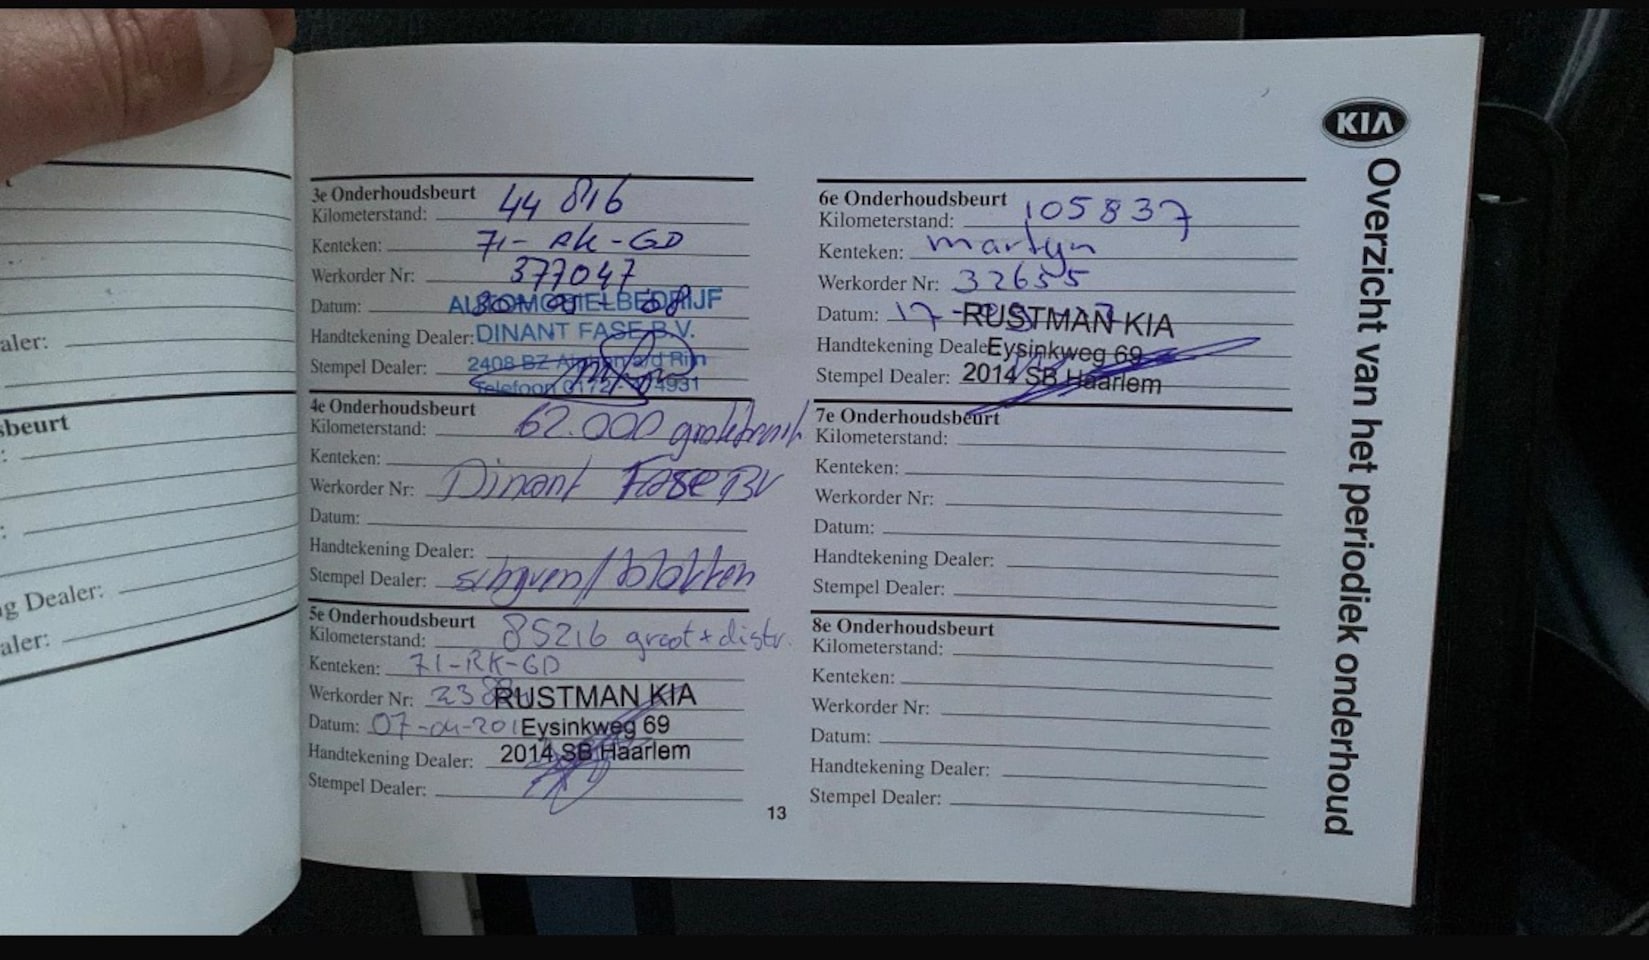 KIA
Overzicht van het periodiek onderhoud
3e Onderhoudsbeurt
Kilometerstand: 44 816
Kenteken: 71-RK-GD
Werkorder Nr: 377047
Datum:
AUTOMOBIELBEDRIJF
Handtekening Dealer: DINANT FASE B.V.
Stempel Dealer: 2408 BZ Alphen a/d Rijn
Telefoon 0172-
4e Onderhoudsbeurt
Kilometerstand: 62.000 grote beurt
Kenteken:
Werkorder Nr: Dinant Fase BV
Datum:
Handtekening Dealer:
Stempel Dealer: schijven/blokken
5e Onderhoudsbeurt
Kilometerstand: 85216 groot + distr.
Kenteken: 71-RK-GD
Werkorder Nr: RUSTMAN KIA
Datum: 07-04-201 Eysinkweg 69
Handtekening Dealer: 2014 SB Haarlem
Stempel Dealer:
13
6e Onderhoudsbeurt
Kilometerstand: 105837
Kenteken: martyn
Werkorder Nr: 32655
Datum: 17- RUSTMAN KIA
Handtekening Deale Eysinkweg 69
Stempel Dealer: 2014 SB Haarlem
7e Onderhoudsbeurt
Kilometerstand:
Kenteken:
Werkorder Nr:
Datum:
Handtekening Dealer:
Stempel Dealer:
8e Onderhoudsbeurt
Kilometerstand:
Kenteken:
Werkorder Nr:
Datum:
Handtekening Dealer:
Stempel Dealer:
aler:
sbeurt
g Dealer:
aler: